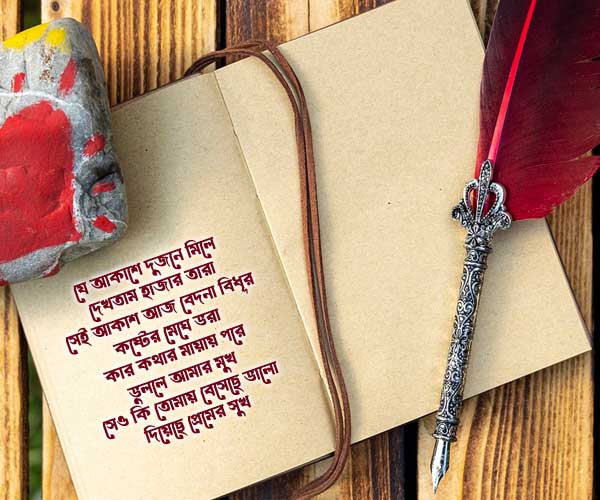 যে আকাশে দুজনে মিলে
দেখতাম হাজার তারা
সেই আকাশ আজ বেদনা বিধূর
কষ্টের মেঘে ভরা
কার কথার মায়ায় পরে
ভুললে আমার মুখ
সেও কি তোমায় বেসেছে ভালো
দিয়েছে প্রেমের সুখ